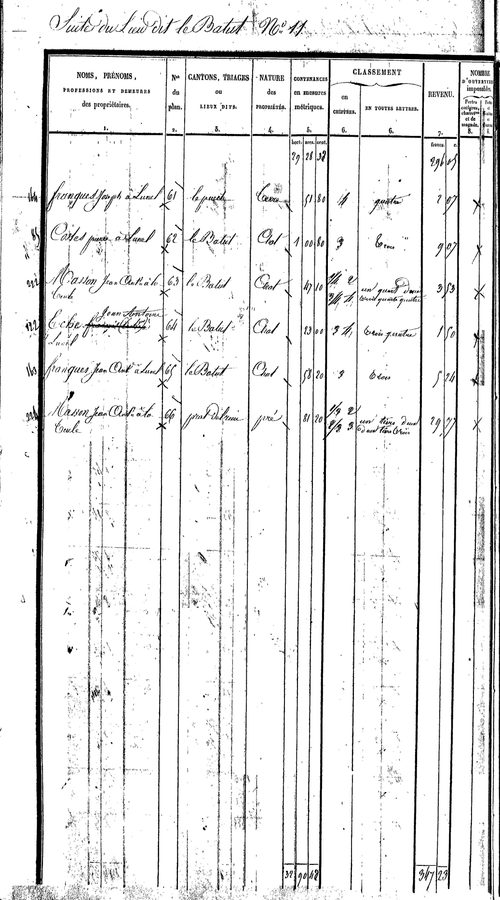 Suite du Lieu dit le Batut N.º 11
NOMS, PRÉNOMS, PROFESSIONS ET DEMEURES des propriétaires. Nos du plan. CANTONS, TRIAGES ou LIEUX DITS. NATURE des PROPRIÉTÉS. CONTENANCES en mesures métriques. CLASSEMENT en CHIFFRES. EN TOUTES LETTRES. REVENU. NOMBRE D'OUVERTURES imposables.
1. 2. 3. 4. 5. 6. 6. 7. 8.
hect. ares. cent. francs. c.
29 28 38 296 05
franques Joseph à Lunel 61 le Terre 51 80 4 quatre 2 07
Costes à Lunel 62 le Batut Chat 1 00 80 3 trois 9 07
222 Masson Jean Ant. à la 63 le Batut Chat 47 10 1/4 2 un quart deux 3 53
3/4 4 trois quarts quatre
Jean Antoine
122 Eche 64 le Batut Chat 23 00 3 4 trois quatre 1 50
Lunel
163 franques Jean Ant. à Lunel 65 le Batut Chat 58 20 3 trois 5 24
Masson Jean Ant. à la 66 pré 81 20 1/3 2 un tiers deux 29 77
2/3 3 deux tiers trois
32 90 48 347 23